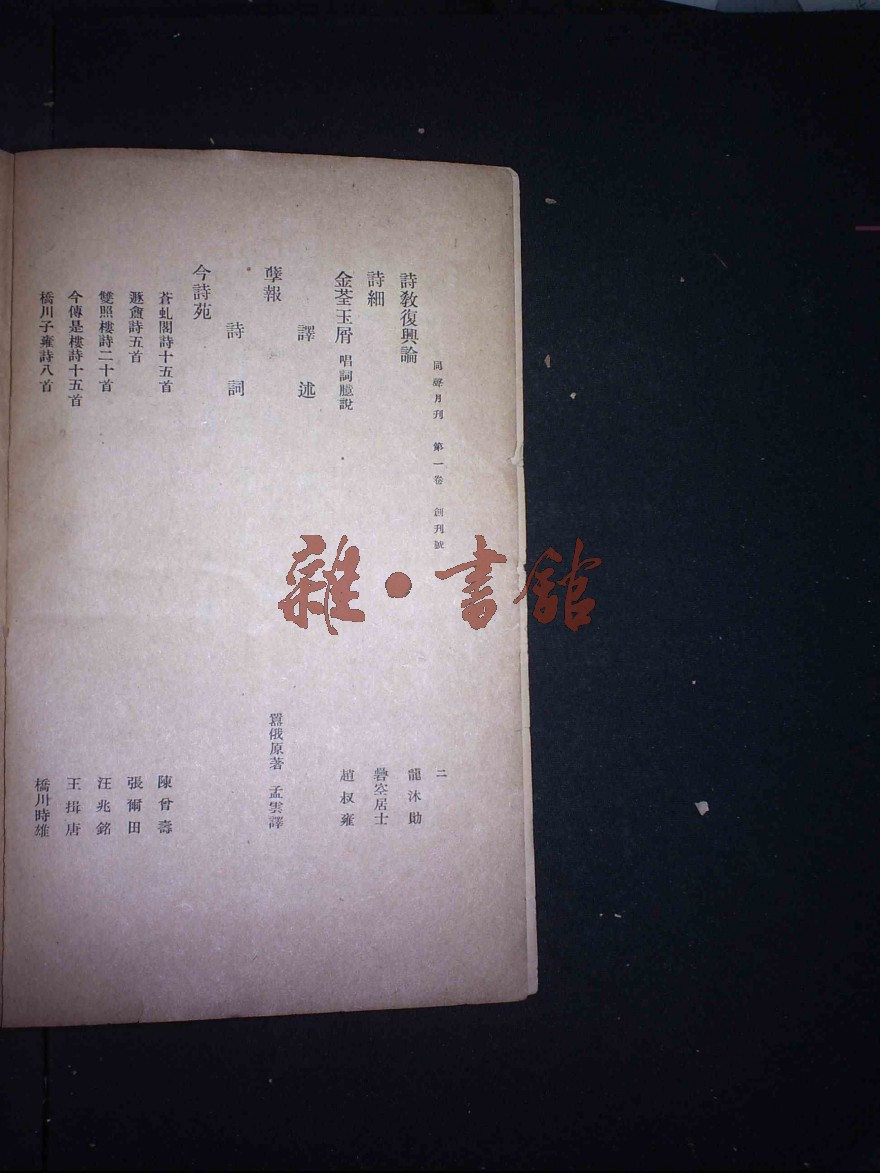 同聲月刊 第一卷 創刊號 二
詩教復興論 龍沐勛
詩細 礜空居士
金荃玉屑 唱詞臆說 趙叔雍
譯述
孽報 囂俄原著 孟雲譯
詩詞
今詩苑
蒼虬閣詩十五首 陳曾壽
遯盦詩五首 張爾田
雙照樓詩二十首 汪兆銘
今傳是樓詩十五首 王揖唐
橋川子雍詩八首 橋川時雄
雜·書館